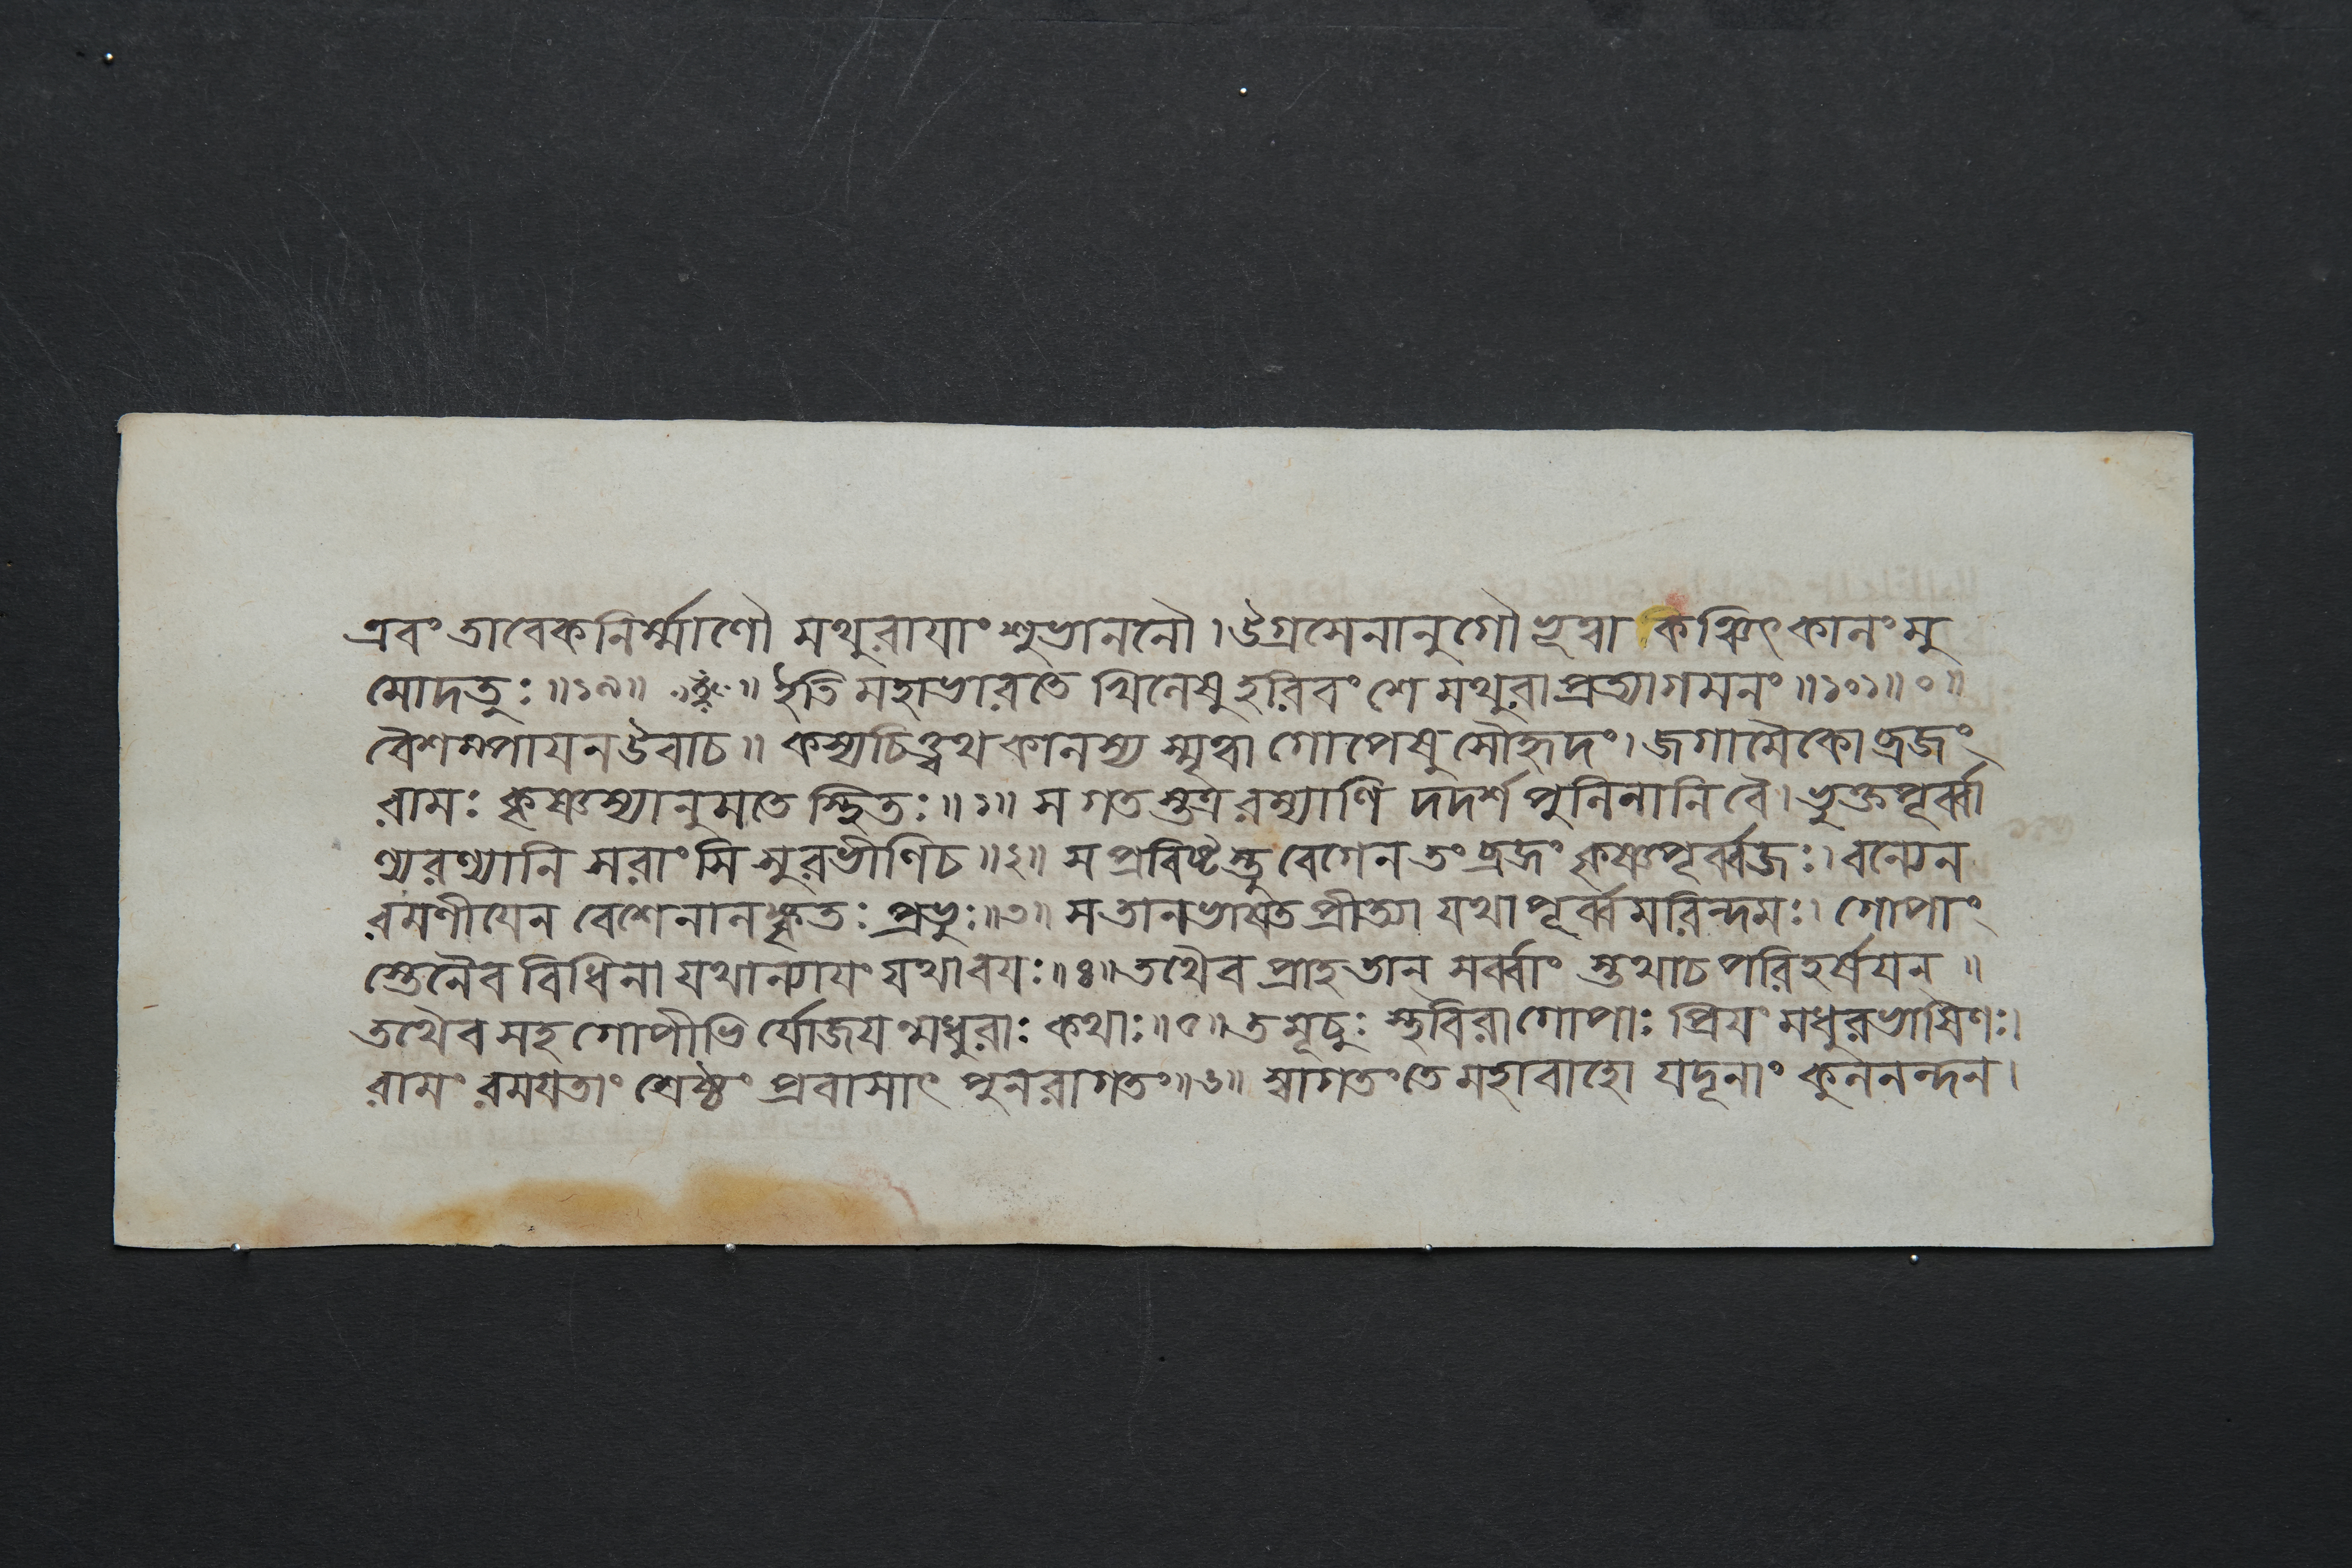 এবং তাবেকনির্ম্মাণৌ মথুরাযাং শুভাননৌ। উগ্রসেনানুগৌ ভূত্বা কিঞ্চিৎ কালং মু
মোদতুঃ॥১৯॥ ॥ ইতি মহাভারতে খিলেষু হরিবংশে মথুরাপ্রত্যাগমনং॥১০১॥০॥
বৈশম্পাযন উবাচ॥ কস্যচিত্ত্বথ কালস্য স্মৃত্বা গোপেষু সৌহৃদং। জগামৈকো ব্রজং
রামঃ কৃষ্ণস্যানুমতে স্থিতঃ॥১॥ স গতস্তত্র রম্যাণি দদর্শ পুলিনানি বৈ। ভুক্তপূর্ব্বা
ণ্যরণ্যানি সরাংসি সুরভীণি চ॥২॥ স প্রবিষ্টস্তু বেগেন তং ব্রজং কৃষ্ণপূর্ব্বজঃ। বন্যেন
রমণীযেন বেশেনালঙ্কৃতঃ প্রভুঃ॥৩॥ স তানভাষত প্রীত্যা যথাপূর্ব্বমরিন্দমঃ। গোপাং
স্তেনৈব বিধিনা যথান্যাযং যথাবযঃ॥৪॥ তথৈব প্রাহ তান্ সর্ব্বাং স্তথা চ পরিহর্ষযন্॥
তথৈব সহ গোপীভির্যোজযন্মধুরাঃ কথাঃ॥৫॥ তমূচুঃ স্থবিরা গোপাঃ প্রিযং মধুরভাষিণঃ।
রামং রমযতাং শ্রেষ্ঠং প্রবাসাৎ পুনরাগতং॥৬॥ স্বাগতং তে মহাবাহো যদূনাং কুলনন্দন।